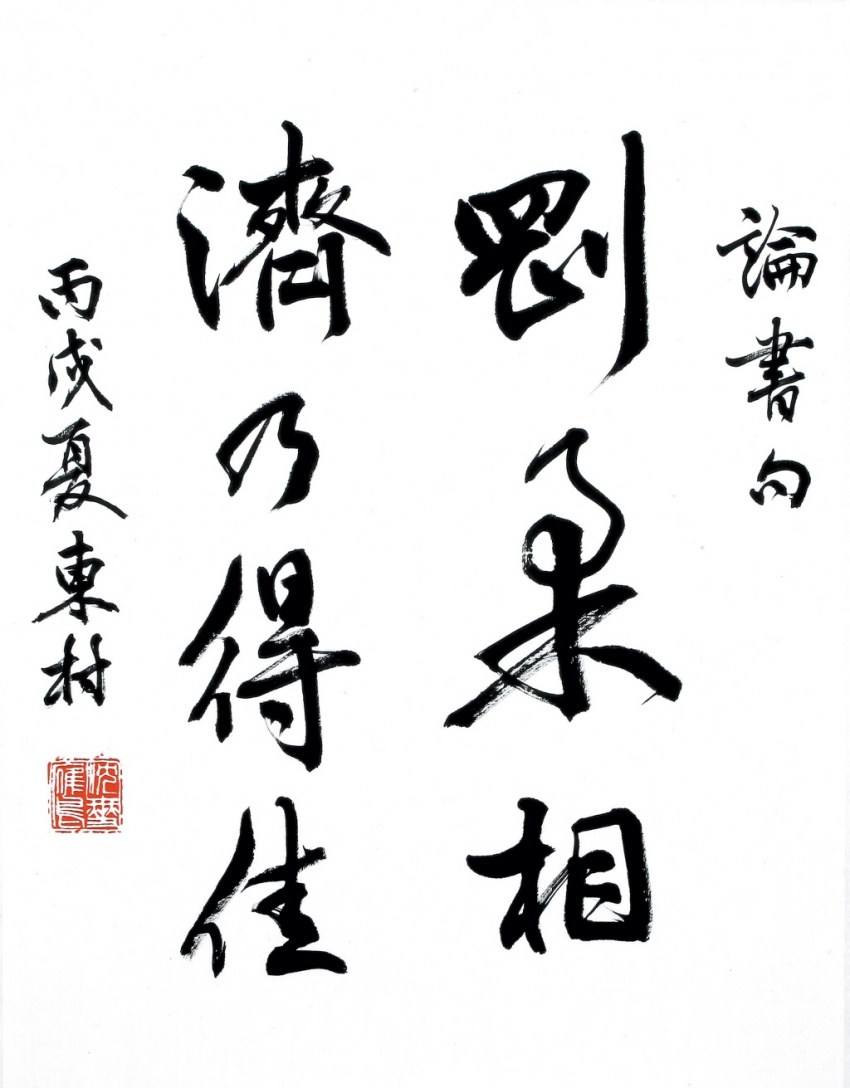 論書句
剛柔相
濟乃得佳
丙戌夏東村